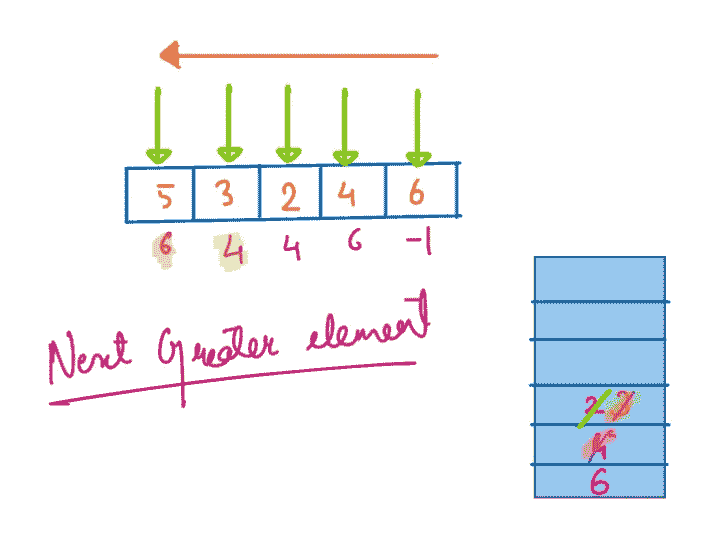 5 3 2 4 6
6 4 4 6 -1
Next Greater element
2
4
6